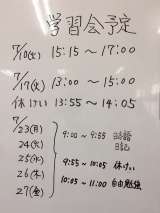 学習会予定
7/10(火) 15:15～17:00
7/17(火) 13:00～15:00
休けい 13:55～14:05
7/23(月)
24(火)
25(水)
26(木)
27(金)
9:00～9:55 国語
日記
9:55～10:05 休けい
10:05～11:00 自由勉強